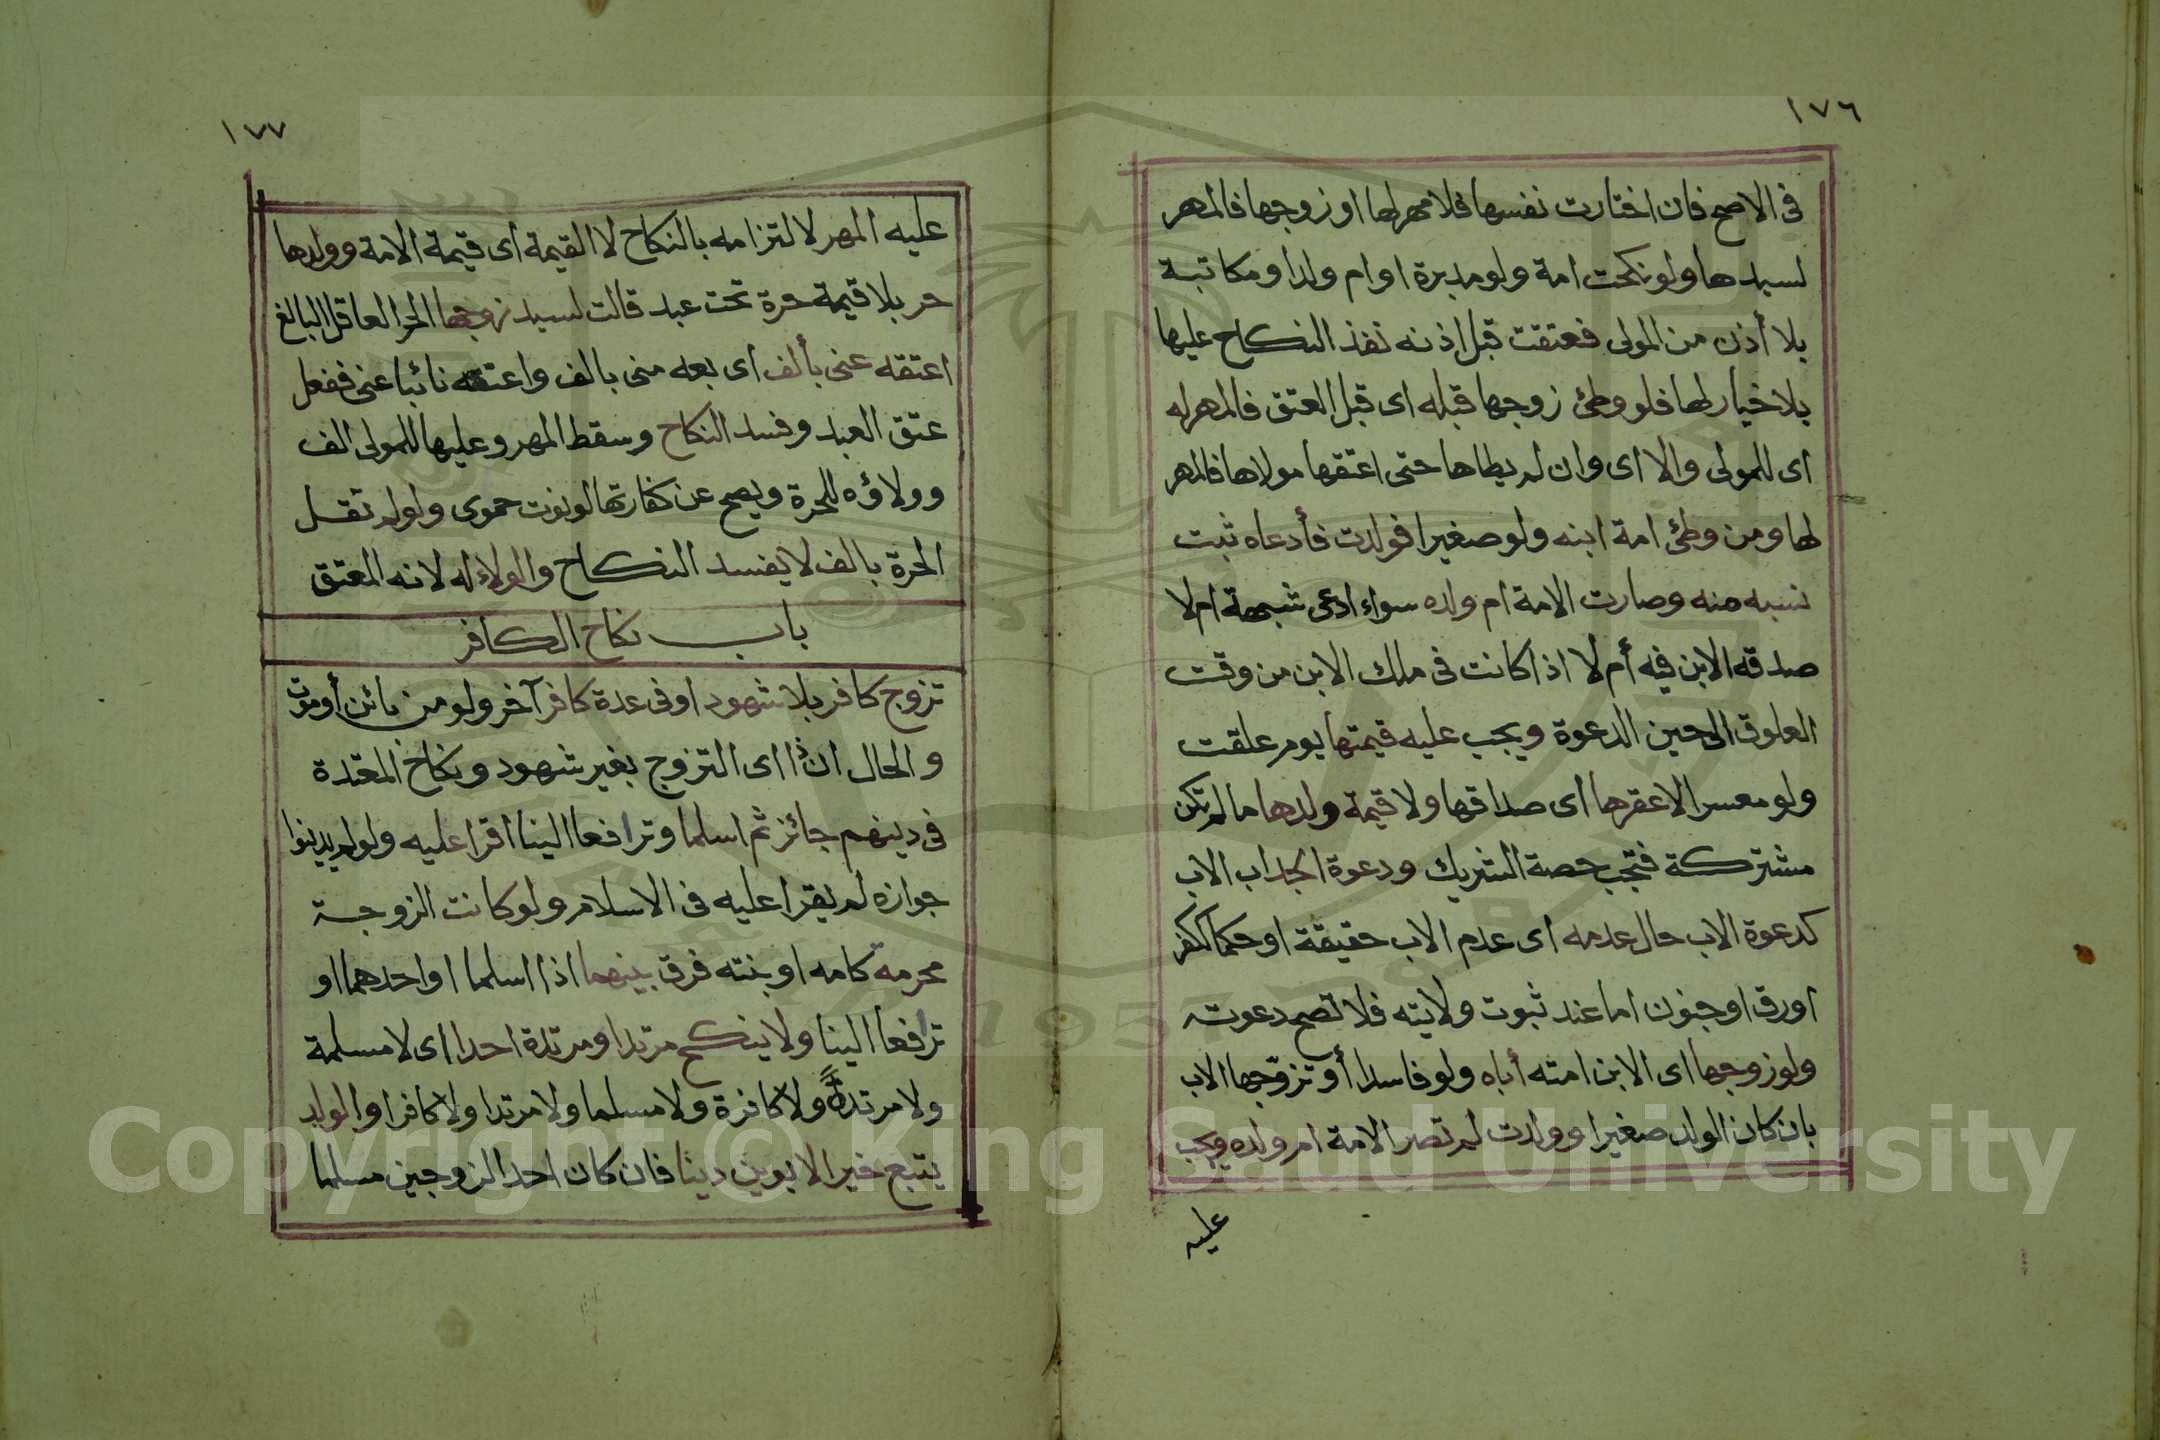 ١٧٦
فى الاصح فان اختارت نفسها فلا مهر لها او زوجها فالمهر
لسيدها ولو نكحت امة ولو مدبرة او ام ولد او مكاتبة
بلا أذن من المولى فعتقت قبل اذنه نفذ النكاح عليها
بلا خيار لها فلو وطئ زوجها قبله اى قبل العتق فالمهر له
اى للمولى والا اى وان لم يطاها حتى اعتقها مولاها فالمهر
لها ومن وطئ امة ابنه ولو صغيرا فولدت فأدعاه ثبت
نسبه منه وصارت الامة ام ولده سواء ادعى شبهة ام لا
صدقه الابن فيه أم لا اذا كانت فى ملك الابن من وقت
العلوق الى حين الدعوة ويجب عليه قيمتها يوم علقت
ولو معسرا لا عقرها اى صداقها ولا قيمة ولدها ما لم تكن
مشتركة فتجب حصة الشريك ودعوة الجد اب الاب
كدعوة الاب حال عدمه اى عدم الاب حقيقة او حكما ككفر
او رق او جنون اما عند ثبوت ولايته فلا تصح دعوته
ولو زوجها اى الابن امته أباه ولو فاسدا أو تزوّجها الاب
بان كان الولد صغيرا وولدت لم تصر الامة ام ولده ويجب
عليه
١٧٧
عليه المهر لالتزامه بالنكاح لا القيمة اى قيمة الامة وولدها
حر بلا قيمة حرة تحت عبد قالت لسيد زوجها الحر العاقل البالغ
اعتقه عنى بألف اى بعه منى بالف واعتقه نائبا عنى ففعل
عتق العبد وفسد النكاح وسقط المهر وعليها للمولى الف
وولاؤه للحرة ويصح عن كفارتها لو نوت حموى ولو لم تقل
الحرة بالف لا يفسد النكاح والولاء له لانه المعتق
باب نكاح الكافر
تزوج كافر بلا شهود او فى عدة كافر آخر ولو من بائن أو موت
والحال ان ذا اى التزوج بغير شهود ونكاح المعتدة
فى دينهم جائز ثم اسلما وترافعا الينا اقرا عليه ولو لم يدينوا
جوازه لم يقرا عليه فى الاسلام ولو كانت الزوجة
محرمة كامه او بنته فرق بينهما اذا اسلما او احدهما او
ترافعا الينا ولا ينكح مرتد او مرتدة احدا اى لا مسلمة
ولا مرتدةً ولا كافرة ولا مسلما ولا مرتدا ولا كافرا والولد
يتبع خير الابوين دينا فان كان احد الزوجين مسلما
Copyright © King Saud University
1957